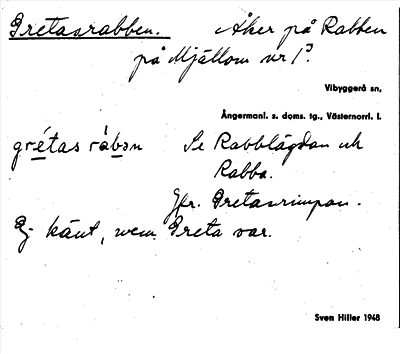 Gretasrabben. Åker på Rabben
på Mjällom nr 1³.
Vibyggerå sn,
Ångermanl. s. doms. tg., Västernorrl. l.
grétas ràbən Se Rabblägdan och
Rabba.
Jfr. Gretasrimpan.
Ej känt, vem Greta var.
Sven Hiller 1948